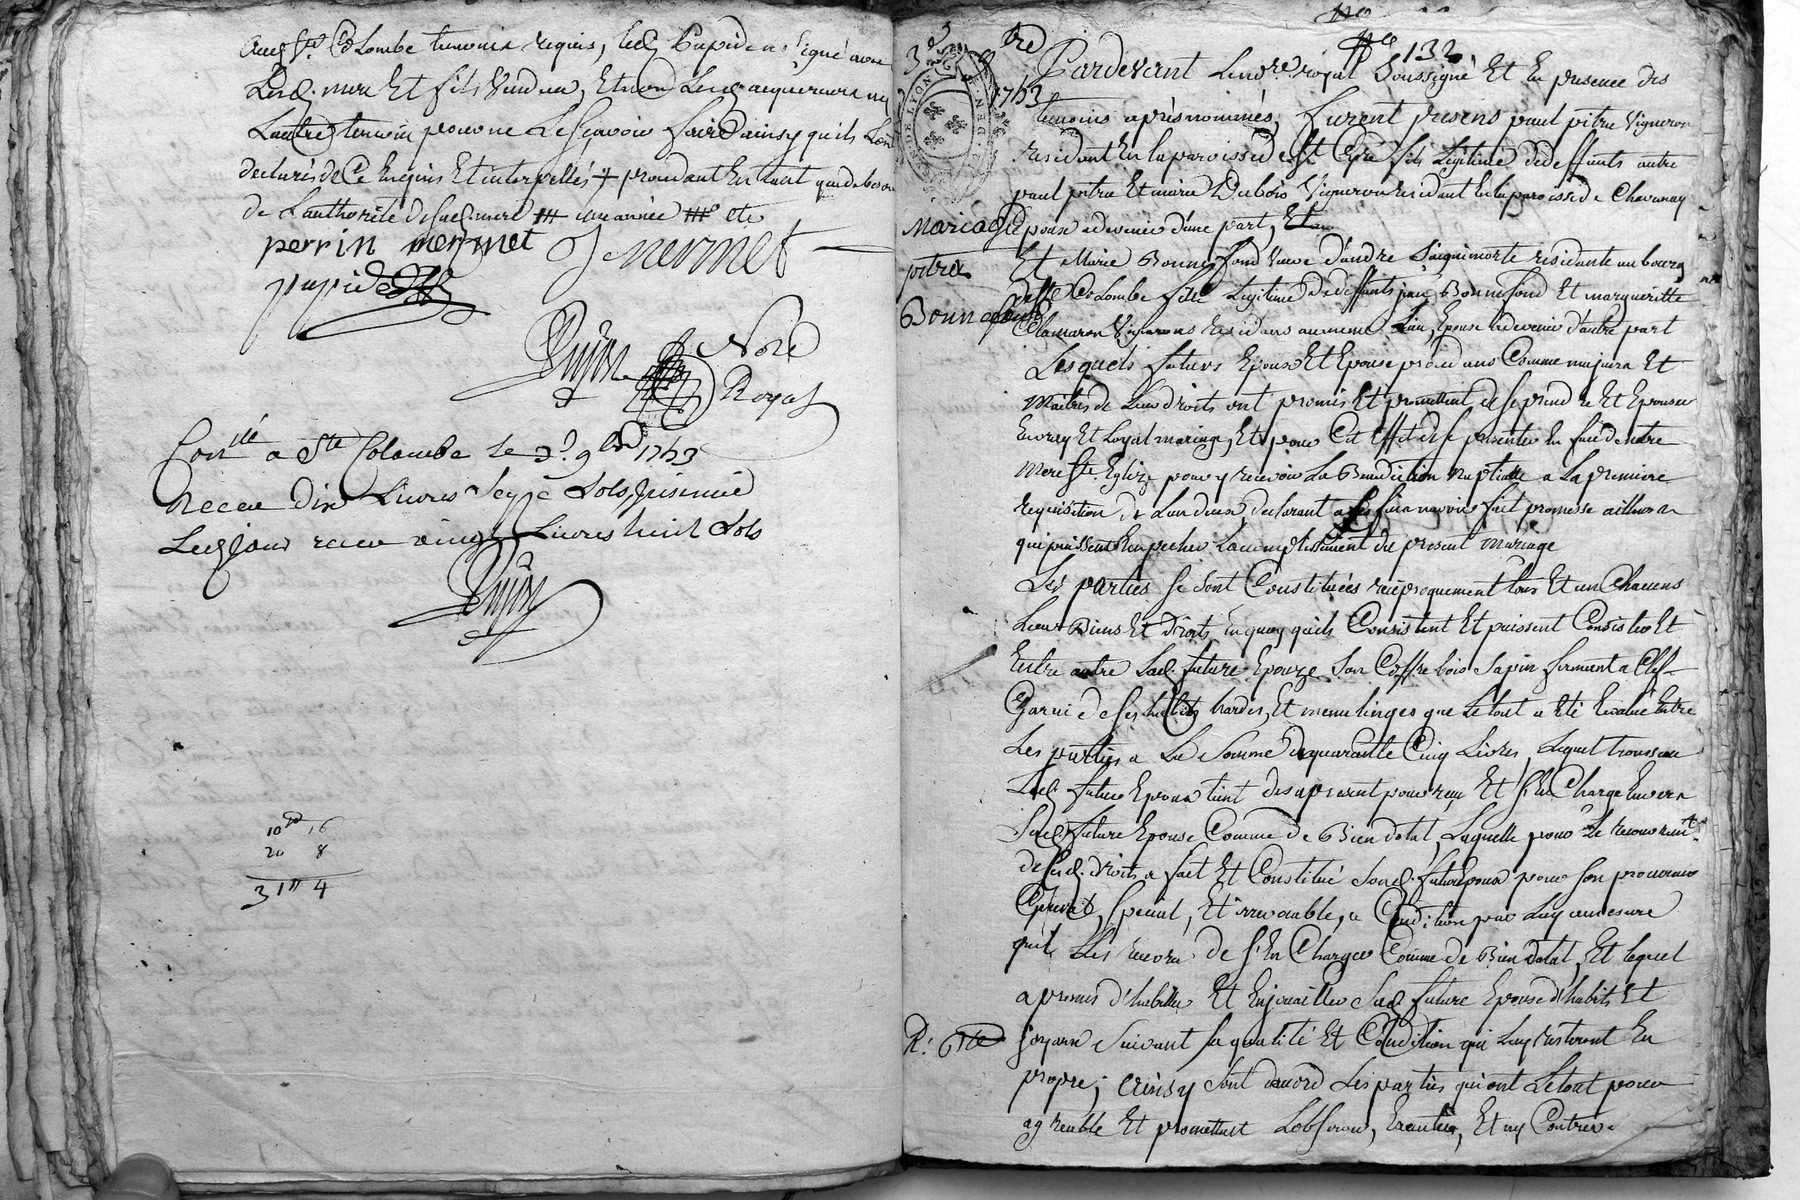 Ste Colombe temoins requis, led. Pupide a signé avec
Lesd. mere Et fils Vendeurs, Et non Lesd. acquereurs ny
Lautre temoin pour ne Le Sçavoir faire ainsy quils L'ont
declarés de Ce Enquis Et interpellés + procedant En tant que de besoin
de Lauthorité de Sad. mere
perrin mermet J mermet
pupide
Dujas Nore
Royal
Conlé a Ste Colombe le 3e 9bre 1763
Receu Dix Livres Seize Sols
Led Jour receu vingt Livres huit Sols
Dujas
10 16
20 8
31 4
132
3e 9bre
1763
GEN. DE LYON
Mariage
pitre
Bonnefond
Pardevant Le nore royal Soussigné Et En presence des
temoins aprés nommés, furent presens paul pitre Vigneron
residant En la paroisse de St Cyr fils Legitime de deffunts autre
paul pitre Et marie Dubois Vigneron residant En la paroisse de Chavanay
Epoux advenir d'une part, Et
Et Marie Bonnefond Veuve d'andré Saiguimorte residante au bourg
de Ste Colombe fille Legitime de deffunts Bonnefond Et margueritte
Clamaron Vignerons residans au meme Lieu, Epouse advenir d'autre part
Lesquels futurs Epoux Et Epouse procedans Comme majeurs Et
Maitres de Leurs droits ont promis Et promettent de Se prendre Et Epouser
En vray Et Loyal mariage, Et pour Cet Effet de Se presenter En face de notre
Mere Ste Eglize pour y recevoir La Benediction Nuptialle a La premiere
requisition de L'un deux, declarant n'avoir fait promesse ailleurs
qui puissent Empecher Laccomplissement du present Mariage
Les parties Se Sont Constituées reciproquement tous Et un Chacuns
Leurs Biens Et droits En quoy quils Consistent Et puissent Consister Et
Entre autre Lad. future Epouze Son Coffre bois Sapin fermant a Clef
Garni de Ses habits hardes, Et menu linges que Le tout a Eté Evalué Entre
Les parties a La Somme de quarante Cinq Livres, Lequel trousseau
Led. futur Epoux tient des apresent pour reçu Et S'En Charge Envers
Sad. future Epouse Comme de Bien dotal, Laquelle pour Le recouvremt
de Sesd. droits a fait Et Constitué Sond. futur Epoux pour Son procureur
General, Special, Et irrevocable, a Condition par Luy a mesure
quil Les recevra de S'En Charger Comme de Bien dotal, Et lequel
a promis d'habiller Et Enjouailler Sad. future Epouse d'habits Et
Joyaux Suivant Sa qualité Et Condition qui Luy resteront En
propre; ainsy Sont d'accord Les parties qui ont Le tout pour
agreable Et promettent L'observer, Executer, Et ny Contrev.